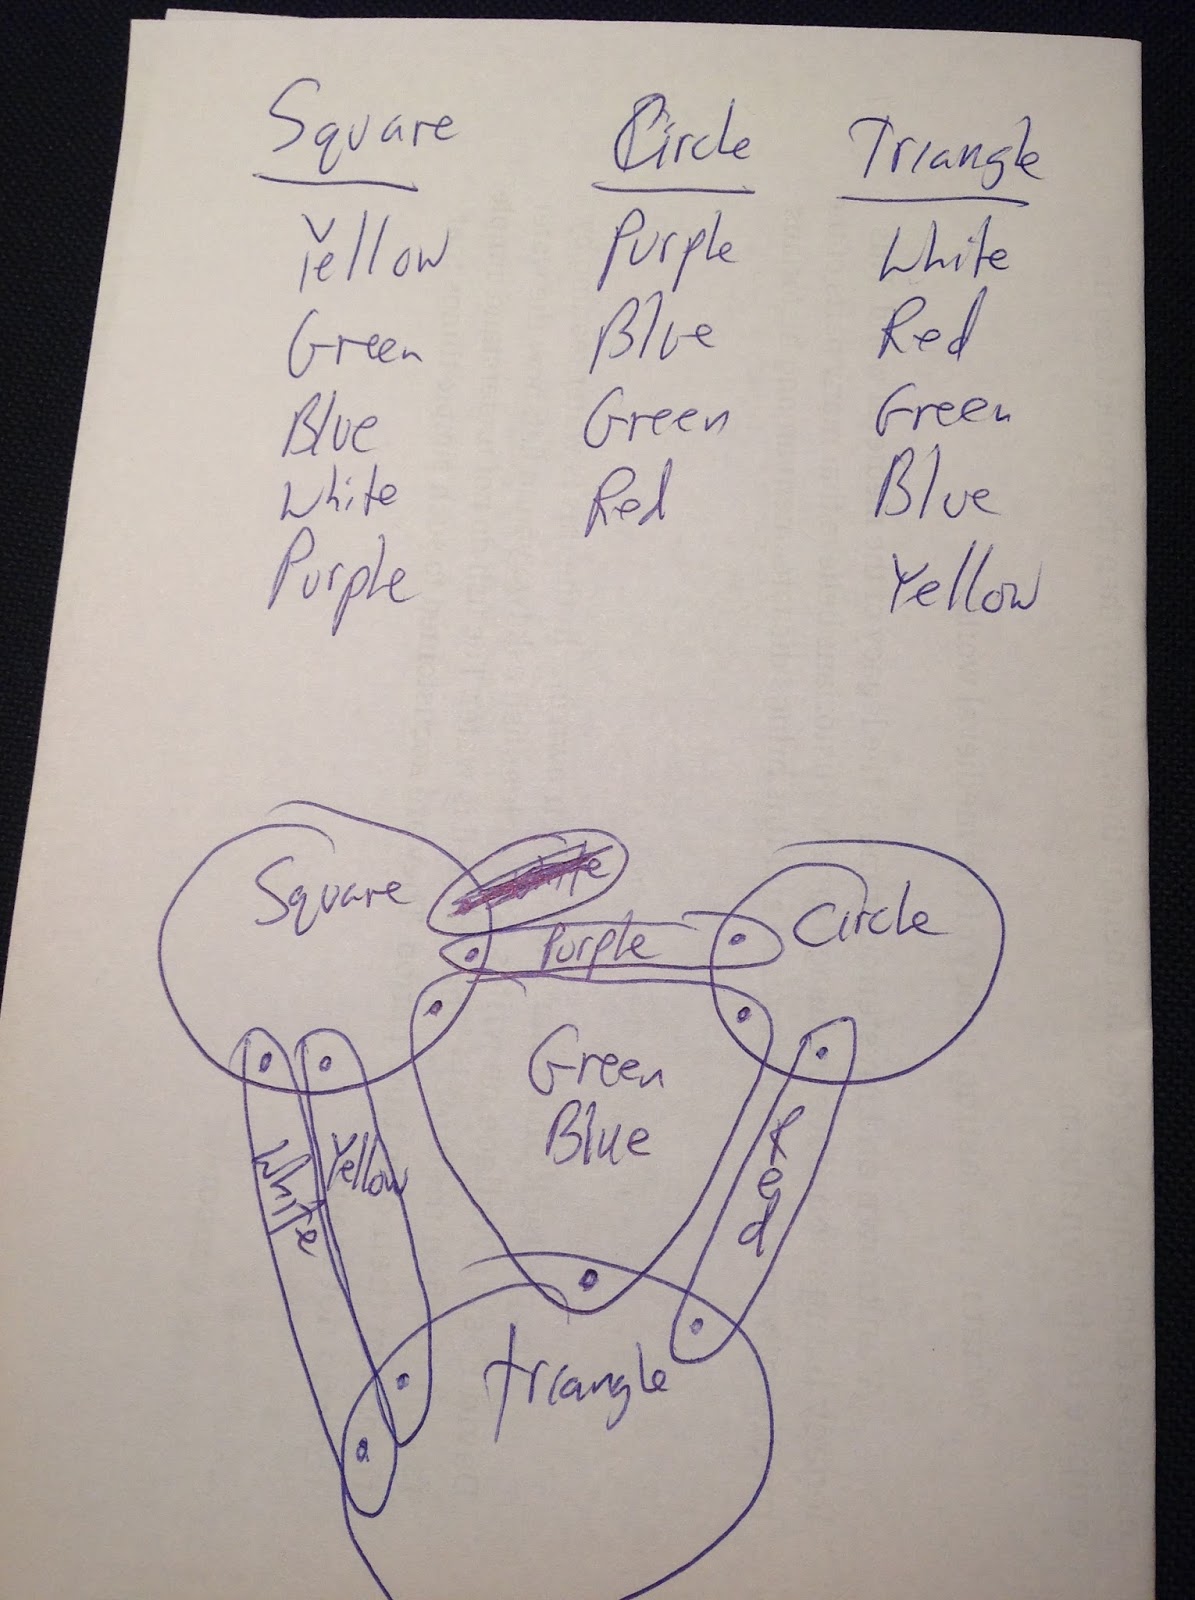 Square Circle Triangle
Yellow Purple White
Green Blue Red
Blue Green Green
White Red Blue
Purple Yellow
Square Circle
Purple
Green
Blue
White Yellow Red
triangle